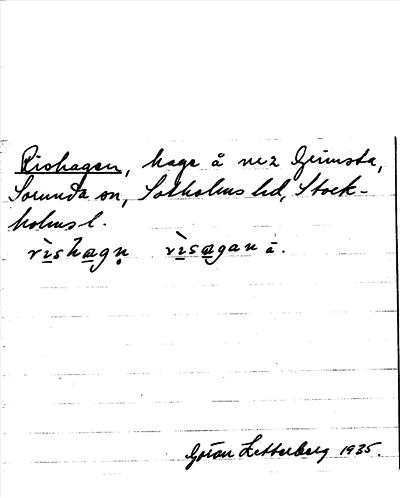 Rishagen, hage å nr 2 Grimsta,
Sorunda sn, Sotholms hd, Stock-
holms l.
rìshagn̥ rìsagan ä.
Göran Zetterberg 1935.